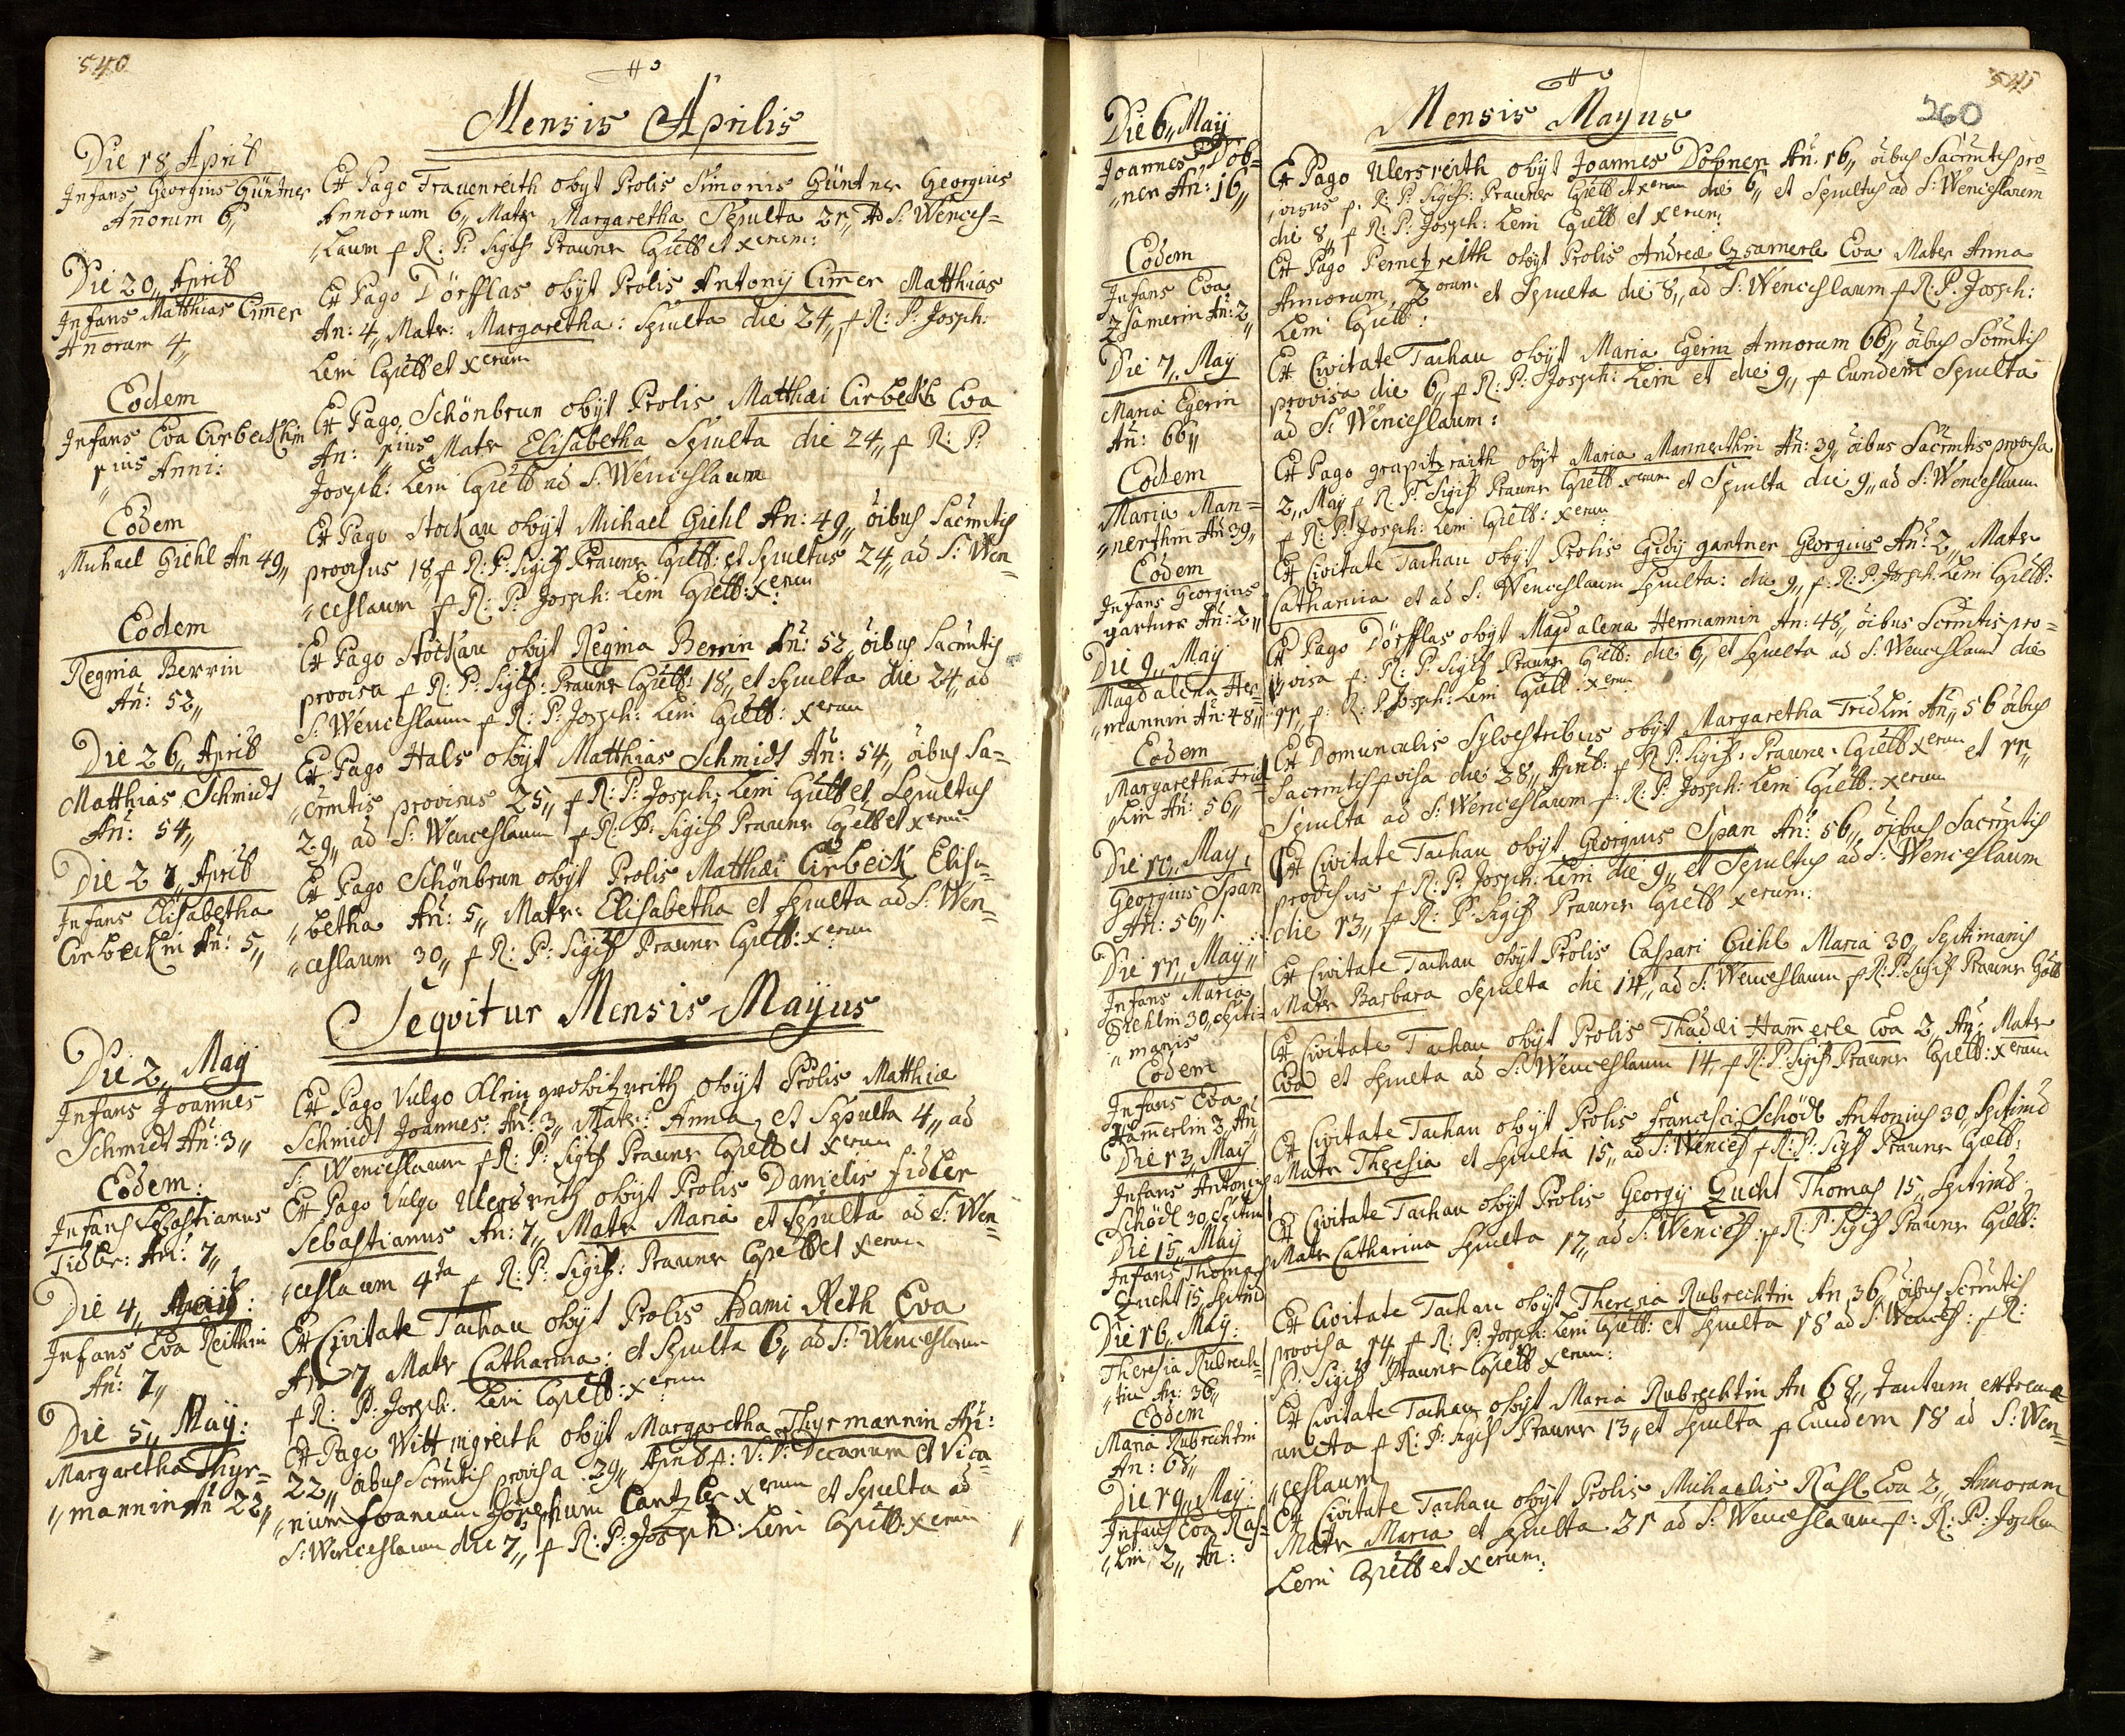 540
Mensis Aprilis
Die 18 Aprils
Infans Georgius Güntner
Anorum 6,,
Ex Pago Frauenreith obijt Prolis Simonis Güntner Georgius
Annorum 6,, Matr Margaretha Sepulta 21,, Ad S: Wences=
,,laum p R: P: Sigiß Prauner Cpellt et xerum:
Die 20,, Aprils
Infans Matthias Cim̄er
Anorum 4,,
Ex Pago Dörfflas obijt Prolis Antonij Cim̄er Matthias
An: 4,, Matr: Margaretha: Spulta die 24,, p R: P: Joseph:
Leni Cpellt et xerum
Eodem
Infans Eva Cirbeckhin
1 ius Anni:
Ex Pago Schönbrun obijt Prolis Matthæi Cirbeckh Eva
An: 1 ius Matr Elisabetha Spulta die 24,, p R: P:
Joseph: Leni Cpellt ad S: Wenceslaum
Eodem
Michael Giehl An 49,,
Ex Pago Stockau obijt Michael Giehl An: 49,, öibus Sacrmtis
provisus 18,, p R: P: Sigiß Prauner Cpellt: et Spultus 24,, ad S: Wen=
,,ceslaum p R: P: Joseph: Leni Cpellt: xerum
Eodem
Regina Berrin
An: 52,,
Ex Pago Stöckau obijt Regina Berrin An: 52,, öibus Sacrmtis
provisa p R: P: Sigiß: Prauner Cpellt: 18,, et Spulta die 24,, ad
S: Wenceslaum p R: P: Joseph: Leni Cpellt: xerum
Die 26,, Aprils
Matthias Schmidt
An: 54,,
Ex Pago Hals obijt Matthias Schmidt An: 54,, öibus Sa=
,,crmtis provisus 25,, p R: P: Joseph: Leni Cpellt et Sepultus
29,, ad S: Wenceslaum p R: P: Sigiß Prauner Cpellt et xerum
Die 27,, Aprils
Infans Elisabetha
Cirbeckin An: 5,,
Ex Pago Schönbrun obijt Prolis Matthæi Cirbeck Elisa=
,,betha An: 5,, Matr: Elisabetha et Spulta ad S: Wen=
,,ceslaum 30,, p R: P: Sigiß Prauner Cpellt: xerum
Sequitur Mensis Mayus
Die 2,, May
Infans Joannes
Schmidt An: 3,,
Ex Pago Vulgo Klein growitzreith obijt Prolis Matthiæ
Schmidt Joannes: An: 3,, Matr: Anna, et Spulta 4,, ad
S: Wenceslaum p R: P: Sigiß Prauner Cpellt et xerum
Eodem:
Infans Sebastianus
Fidler: An: 7,,
Ex Pago Vulgo Ulersreith obijt Prolis Danielis Fidler
Sebastianus An: 7,, Matr Maria et Spulta ad S: Wen=
,,ceslaum 4ta p R: P: Sigiß: Prauner Cpellt et xerum
Die 4,,
Infans Eva Reithin
An: 7,,
Ex Civitate Tachau obijt Prolis Adami Reth Eva
An 7 Matr Catharina: et Spulta 6,, ad S: Wenceslaum
p R: P: Joseph: Leni Cpellt: xerum
Die 5,, May:
Margaretha Thyr=
,,mannin An 22,,
Ex Pago Wittingreith obijt Margaretha Thyrmannin An:
22,, öibus Scrmtis provisa 29,, Aprils p: V: D: Decanum et Vica=
,,rium foraneum Josephum Cantzler xerum et Spulta ad
S: Wenceslaum die 7,, p R: P: Joseph: Leni Cpellt: xerum
541
260
Mensis Mayus
Die 6,, May
Joannes Dob=
,,ner An: 16,,
Ex Pago Ulersreith obijt Joannes Dobner An: 16,, öibus Sacrmtis pro=
,,visus p: R: P: Sigiß: Prauner Cpellt et xerum die 6,, et Spultus ad S: Wenceslaum
die 8,, p R: P: Joseph: Leni Cpellt et xerum:
Eodem
Infans Eva
Zsamerin An: 2
Ex Pago Pernetzreith obijt Prolis Andreæ Czsamerle Eva Mater Anna
Annorum 2 orum et Spulta die 8,, ad S: Wenceslaum p R: P: Joseph:
Leni Cpellt:
Die 7,, May
Maria Egerin
An: 66,,
Ex Civitate Tachau obijt Maria Egerin Annorum 66,, öibus Scrmtis
provisa die 6,, p R: P: Joseph: Leni et die 9,, p Eundem Spulta
ad S: Wenceslaum:
Eodem
Maria Man=
,,nerthin An: 39,,
Ex Pago grapitzraith obijt Maria Mannerthin An: 39,, öibus Sacrmtis provisa
2,, May p R: P: Sigiß Prauner Cpellt xerum et Spulta die 9,, ad S: Wenceslaum
p R: P: Joseph: Leni Cpellt: xerum
Eodem
Infans Georgius
gartner An: 2,,
Ex Civitate Tachau obijt Prolis Egidij gantner Georgius An: 2,, Matr
Catharina et ad S: Wenceslaum Spulta: die 9,, p: R: P: Joseph: Leni Cpellt:
Die 9,, May
Magdalena Her=
,,mannin An: 48,,
Ex Pago Dörfflas obijt Magdalena Hermannin An: 48,, öibus Scrmtis pro=
,,visa p: R: P: Sigiß Prauner Cpellt: die 6,, et Spulta ad S: Wenceslaum die
11,, p: R: P: Joseph: Leni Cpellt: xerum
Eodem
Margaretha Frid=
,,lin An: 56,,
Ex Domunculis Sylvestribus obijt Margaretha Fridlin An,, 56 öibus
Sacrmtis pvisa die 28,, Aprils: p R: P: Sigiß: Prauner Cpellt xerum et 11,,
Spulta ad S: Wenceslaum p: R: P: Joseph: Leni Cpellt: xerum
Die 10,, May,
Georgius Span
An: 56,,
Ex Civitate Tachau obijt Georgius Span An: 56,, öibus Sacrmtis
provisus p R: P: Joseph: Leni die 9,, et Sepultus ad S: Wenceslaum
die 13,, p R: P: Sigiß Prauner Cpellt xerum:
Die 11,, May,,
Infans Maria
Giehlin 30,, Septi=
,,manis
Ex Civitate Tachau obijt Prolis Caspari Giehl Maria 30,, Septimanis
Matr Barbara Sepulta die 14,, ad S: Wenceslaum p R: P: Sigiß Prauner Cpellt
Eodem
Infans Eva
Ham̄erlin 2 An
Ex Civitate Tachau obijt Prolis Thadæi Ham̄erle Eva 2,, An: Matr
Eva et Spulta ad S: Wenceslaum 14,, p R: P: Sigiß Prauner Cpellt: xerum
Die 13,, May
Infans Antonius
Schödl 30 Septim
Ex Civitate Tachau obijt Prolis Francisci Schödl Antonius 30,, Sptimis
Matr Theresia et Spulta 15,, ad S: Wences p R: P: Sigß Prauner Cpellt:
Die 15,, May
Infans Thomas
Zucht 15 Sptim
Ex Civitate Tachau obijt Prolis Georgy Zucht Thomas 15,, Sptimis
Matr Catharina Spulta 17,, ad S: Wencesl: p R: P: Sigiß Prauner Cpellt:
Die 16,, May:
Theresia Rubrech=
,,tin An: 36,,
Ex Civitate Tachau obijt Theresia Rubrechtin An 36,, öibus Scrmtis
provisa 14,, p R: P: Joseph: Leni Cpellt: et Spulta 18 ad S: Wencesl: p R:
P: Sigiß Prauner Cpellt xerum:
Eodem
Maria Rubrechtin
An: 68,,
Ex Civitate Tachau obijt Maria Rubrechtin An 68,, tantum extrema
uncta p R: P: Sigiß Prauner 13,, et Spulta p Eundem 18 ad S: Wen=
,,ceslaum
Die 19,, May:
Infans Eva Ras=
,,lin 2,, An:
Ex Civitate Tachau obijt Prolis Michaelis Rasl Eva 2,, Annorum
Matr Maria et Spulta 21 ad S: Wenceslaum p: R: P: Joseph
Leni Cpellt et xerum: